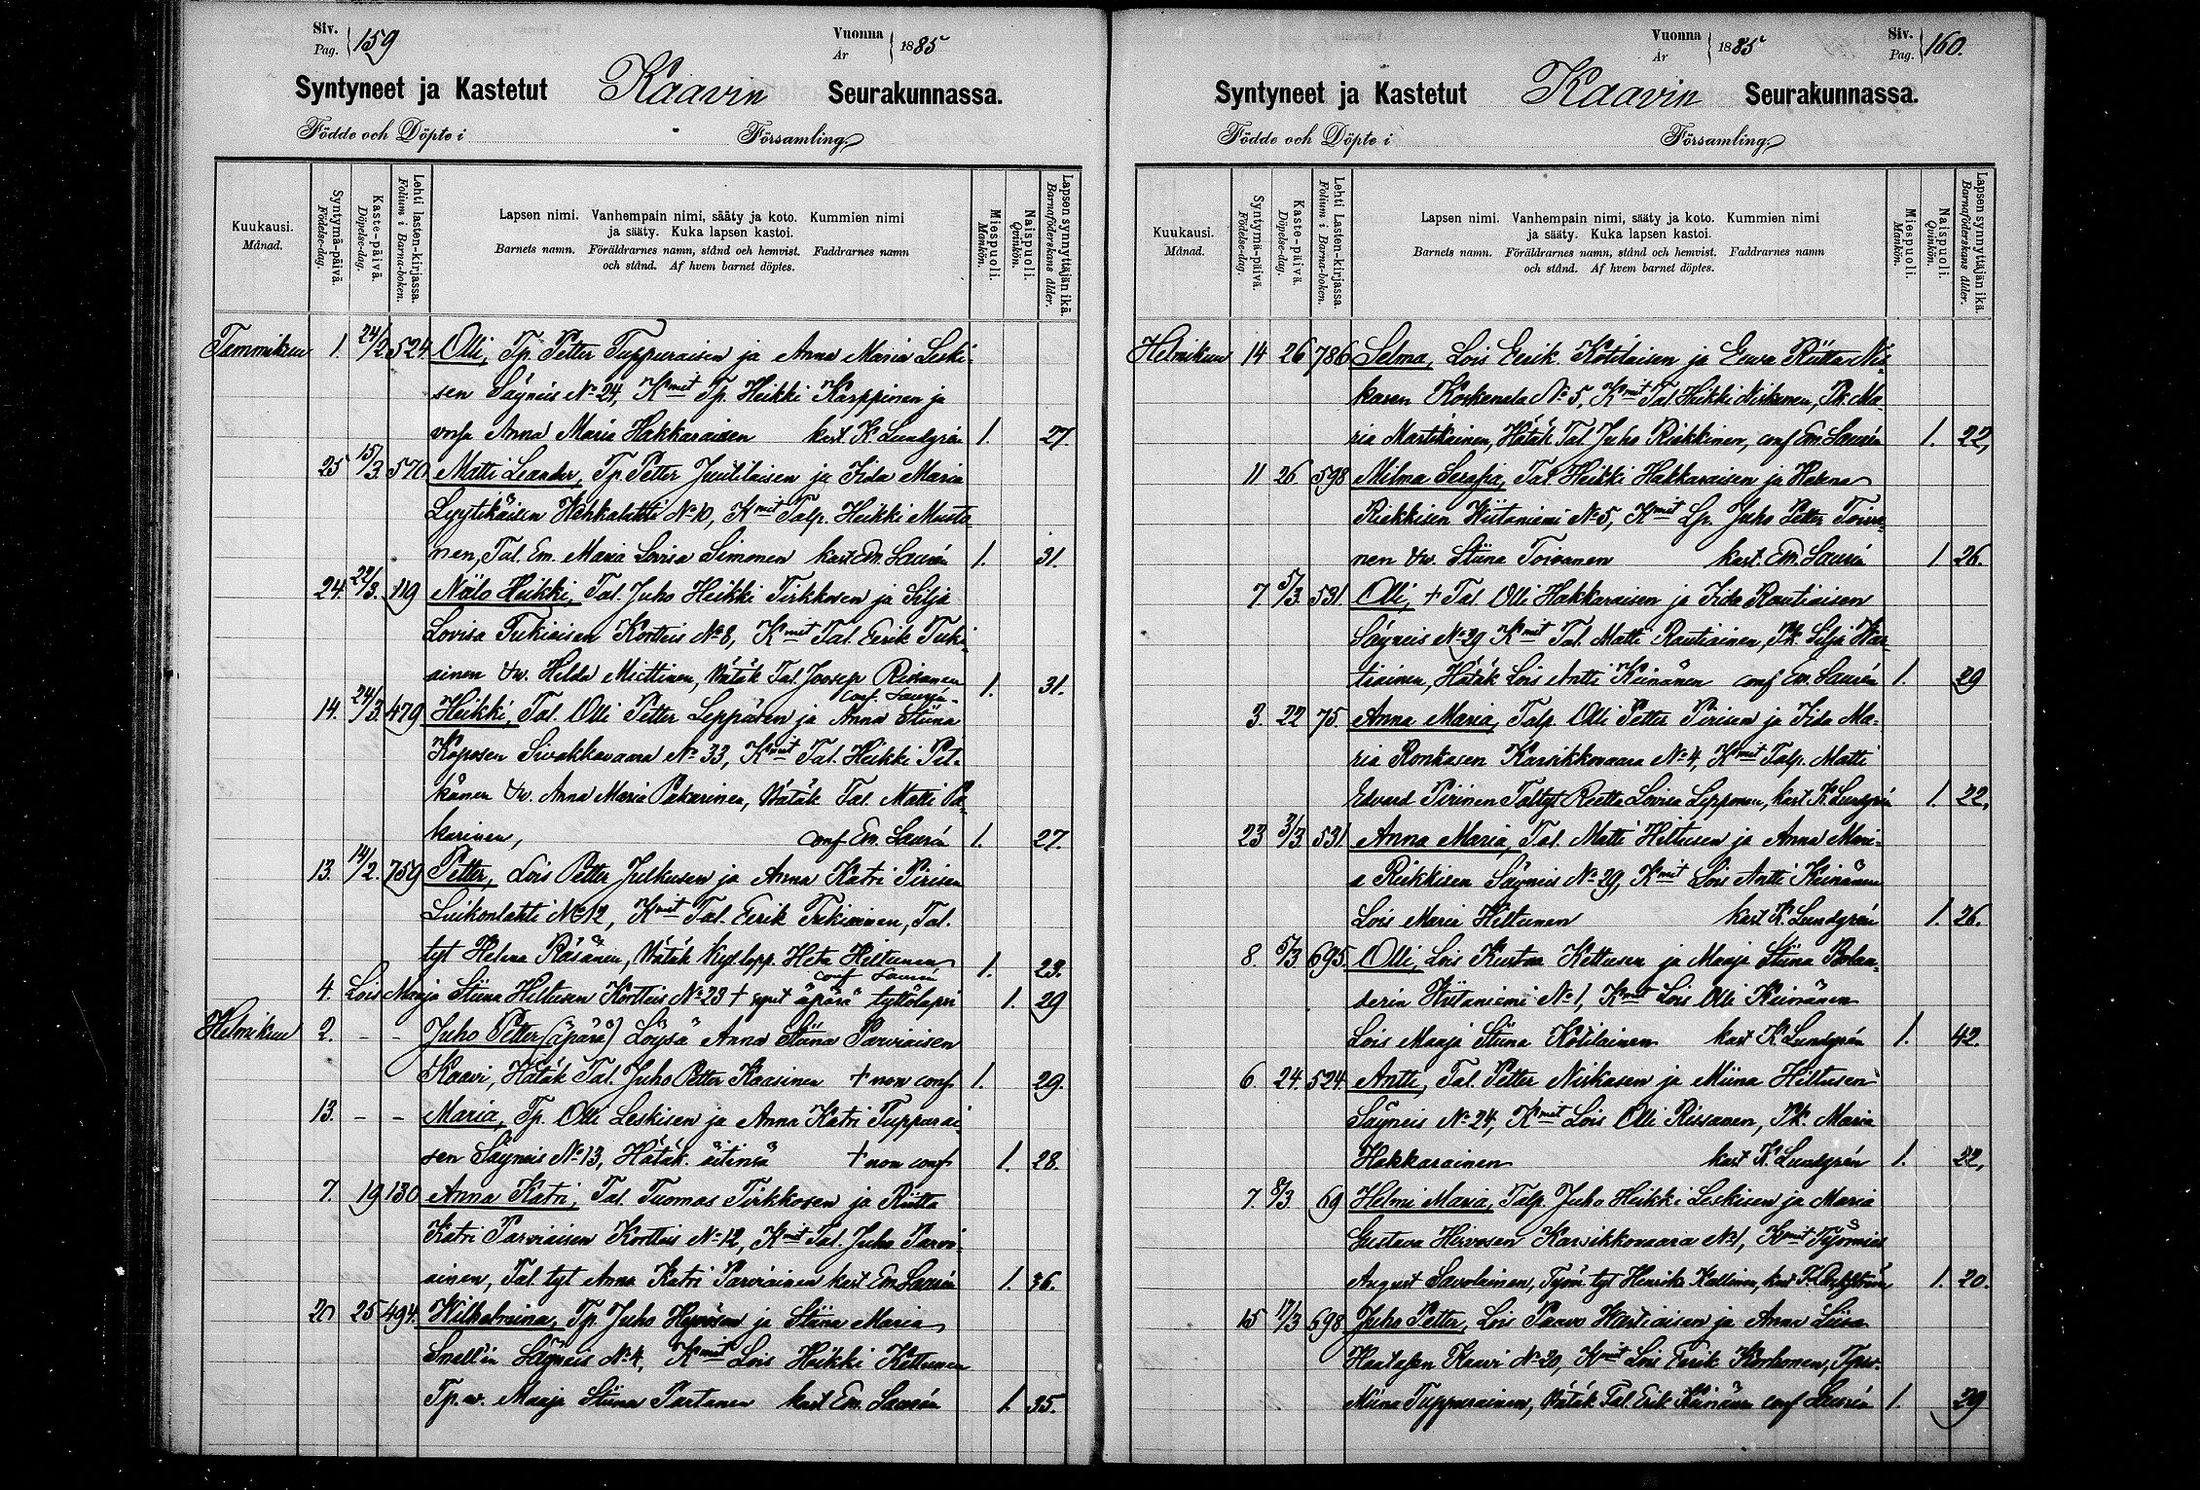 Siv. Pag. 159
Vuonna År 1885
Syntyneet ja Kastetut Kaavin Seurakunnassa.
Födde och Döpte i Församling
Kuukausi. Månad.
Syntymä-päivä. Födelse-dag.
Kaste-päivä. Döpelse-dag.
Lehti lasten-kirjassa. Folium i Barna-boken.
Lapsen nimi. Vanhempain nimi, sääty ja koto. Kummien nimi
ja sääty. Kuka lapsen kastoi.
Barnets namn. Föräldrarnes namn, stånd och hemvist. Faddrarnes namn
och stånd. Af hvem barnet döptes.
Miespuoli. Mankön.
Naispuoli. Qvinkön.
Lapsen synnyttäjän ikä. Barnaföderskans ålder.
Tammikuu 1. 24/2 524 Olli, Tp. Petter Tuppuraisen ja Anna Maria Leski-
sen Säyneis No 24, Kmit Tp. Heikki Karppinen ja
vmsa Anna Maria Hakkaraisen kast K. Lundgrén 1. 27.
25 15/3. 570 Matti Leander, Tp. Petter Juutilaisen ja Iida Maria
Lyytikäisen Wehkalahti No 10, Kmit Talp. Heikki Musto
nen, Tal. Em. Maria Lovisa Simonen kast Em. Saurén 1. 31.
24. 22/3. 119 Niilo Heikki, Tal. Juho Heikki Tirkkosen ja Silja
Lovisa Tukiaisen Kortteis No 8, Kmit Tal. Eerik Tuki-
ainen &w. Helda Miettinen, Hätäk Tal. Joosep Rissanen
conf. Saurén 1. 31.
14. 24/3. 479 Heikki, Tal. Olli Petter Leppäsen ja Anna Stiina
Koposen Sivakkavaara No 33, Kmit Tal. Heikki Pit-
känen &w. Anna Maria Pakarinen, Hätäk Tal. Matti Pa-
karinen, conf Em. Saurén 1. 27.
13. 14/2. 759 Petter, Lois Petter Julkusen ja Anna Katri Pirisen
Luikonlahti No 12, Kmit Tal. Eerik Tukiainen, Tal.
tyt Helena Räsänen, Hätäk Kyl. lopp. Heta Hiltunen
conf Saurén 1. 23.
4. Lois Maaja Stiina Hiltusen Kortteis No 23 + synt äpärä tyttölapsi 1. 29
Helmikuu 2. - - Juho Petter (äpärä) Löysä Anna Stiina Parviaisen
Kaavi, Hätäk Tal. Juho Petter Kaasinen + non conf 1. 29.
13. - - Maria, Tp. Olli Leskisen ja Anna Katri Tuppurai-
sen Säyneis No 13, Hätäk. äitinsä + non conf 1. 28.
7. 19 130 Anna Katri, Tal. Tuomas Tirkkosen ja Riitta
Katri Parviaisen Kortteis No 12, Kmit Tal. Juho Parvi-
ainen, Tal. tyt Anna Katri Parviainen kast Em Saurén 1. 36.
20 25 494. Wilhelmina, Tp. Juho Hyvösen ja Stiina Maria
Snellin Säyneis No 4, Kmit Lois Heikki Kettunen
Tp. w. Maaja Stiina Partanen kast Em. Saurén 1. 35.
Vuonna År 1885
Siv. Pag. 160.
Syntyneet ja Kastetut Kaavin Seurakunnassa.
Födde och Döpte i Församling
Kuukausi. Månad.
Syntymä-päivä. Födelse-dag.
Kaste-päivä. Döpelse-dag.
Lehti Lasten-kirjassa. Folium i Barna-boken.
Lapsen nimi. Vanhempain nimi, sääty ja koto. Kummien nimi
ja sääty. Kuka lapsen kastoi.
Barnets namn. Föräldrarnes namn, stånd och hemvist. Faddrarnes namn
och stånd. Af hvem barnet döptes.
Miespuoli. Mankön.
Naispuoli. Qvinkön.
Lapsen synnyttäjän ikä. Barnaföderskans ålder.
Helmikuu 14 26 786 Selma, Lois Eerik Kotilaisen ja Eeva Riitta Nis-
kasen Koskenala No 5, Kmit Tal. Heikki Niskanen, Pk. Ma-
ria Martikainen, Hätäk Tal. Juho Riekkinen, conf Em Saurén 1. 22,
11 26 598 Milma Serafia, Tal. Heikki Hakkaraisen ja Helena
Riekkisen Wiitaniemi No 5, Kmit Lp. Juho Petter Toiva-
nen &w. Stiina Toivanen kast. Em. Saurén 1 26.
7. 5/3 531. Olli, + Tal. Olli Hakkaraisen ja Iida Rautiaisen
Säyneis No 29 Kmit Tal. Matti Rautiainen, Pk. Silja War-
tiainen, Hätäk Lois Antti Keinänen conf Em. Saurén 1. 29
3. 22 75. Anna Maria, Talp. Olli Petter Pirisen ja Iida Ma-
ria Ronkasen Karsikkovaara No 4, Kmit Talp. Matti
Edvard Pirinen Tal tyt Reetta Lovisa Lepponen, kast K. Lundgrén 1. 22,
23 3/3 531. Anna Maria, Tal. Matti Hiltusen ja Anna Mari-
a Riekkisen Säyneis No 29, Kmit Lois Antti Keinänen
Lois Maria Hiltunen kast K. Lundgrén 1. 26.
8. 5/3 695. Olli, Lois Kustaa Kettusen ja Maaja Stiina
Wiitaniemi No 1, Kmit Lois Olli Keinänen
Lois Maaja Stiina Kotilainen kast K Lundgrén 1. 42.
6 24. 524. Antti, Tal. Petter Niskasen ja Miina Hiltusen
Säyneis No 24, Kmit Lois Olli Rissanen, Pk. Maria
Hakkarainen kast K. Lundgrén 1. 22,
7. 8/3 69 Helmi Maria, Talp. Juho Heikki Leskisen ja Maria
Gustava Hirvosen Karsikkovaara No 1, Kmit Työmies
August Savolainen, Työm. tyt Henrika Kallinen, kast 1. 20.
15 17/3 698 Juho Petter, Lois Paavo Wartiaisen ja Anna Liisa
Kaavi No 20, Kmit Lois Eerik Korhonen, Tp. w.
Miina Tuppurainen, Hätäk Tal. Erik Keinänen conf Saurén 1. 29